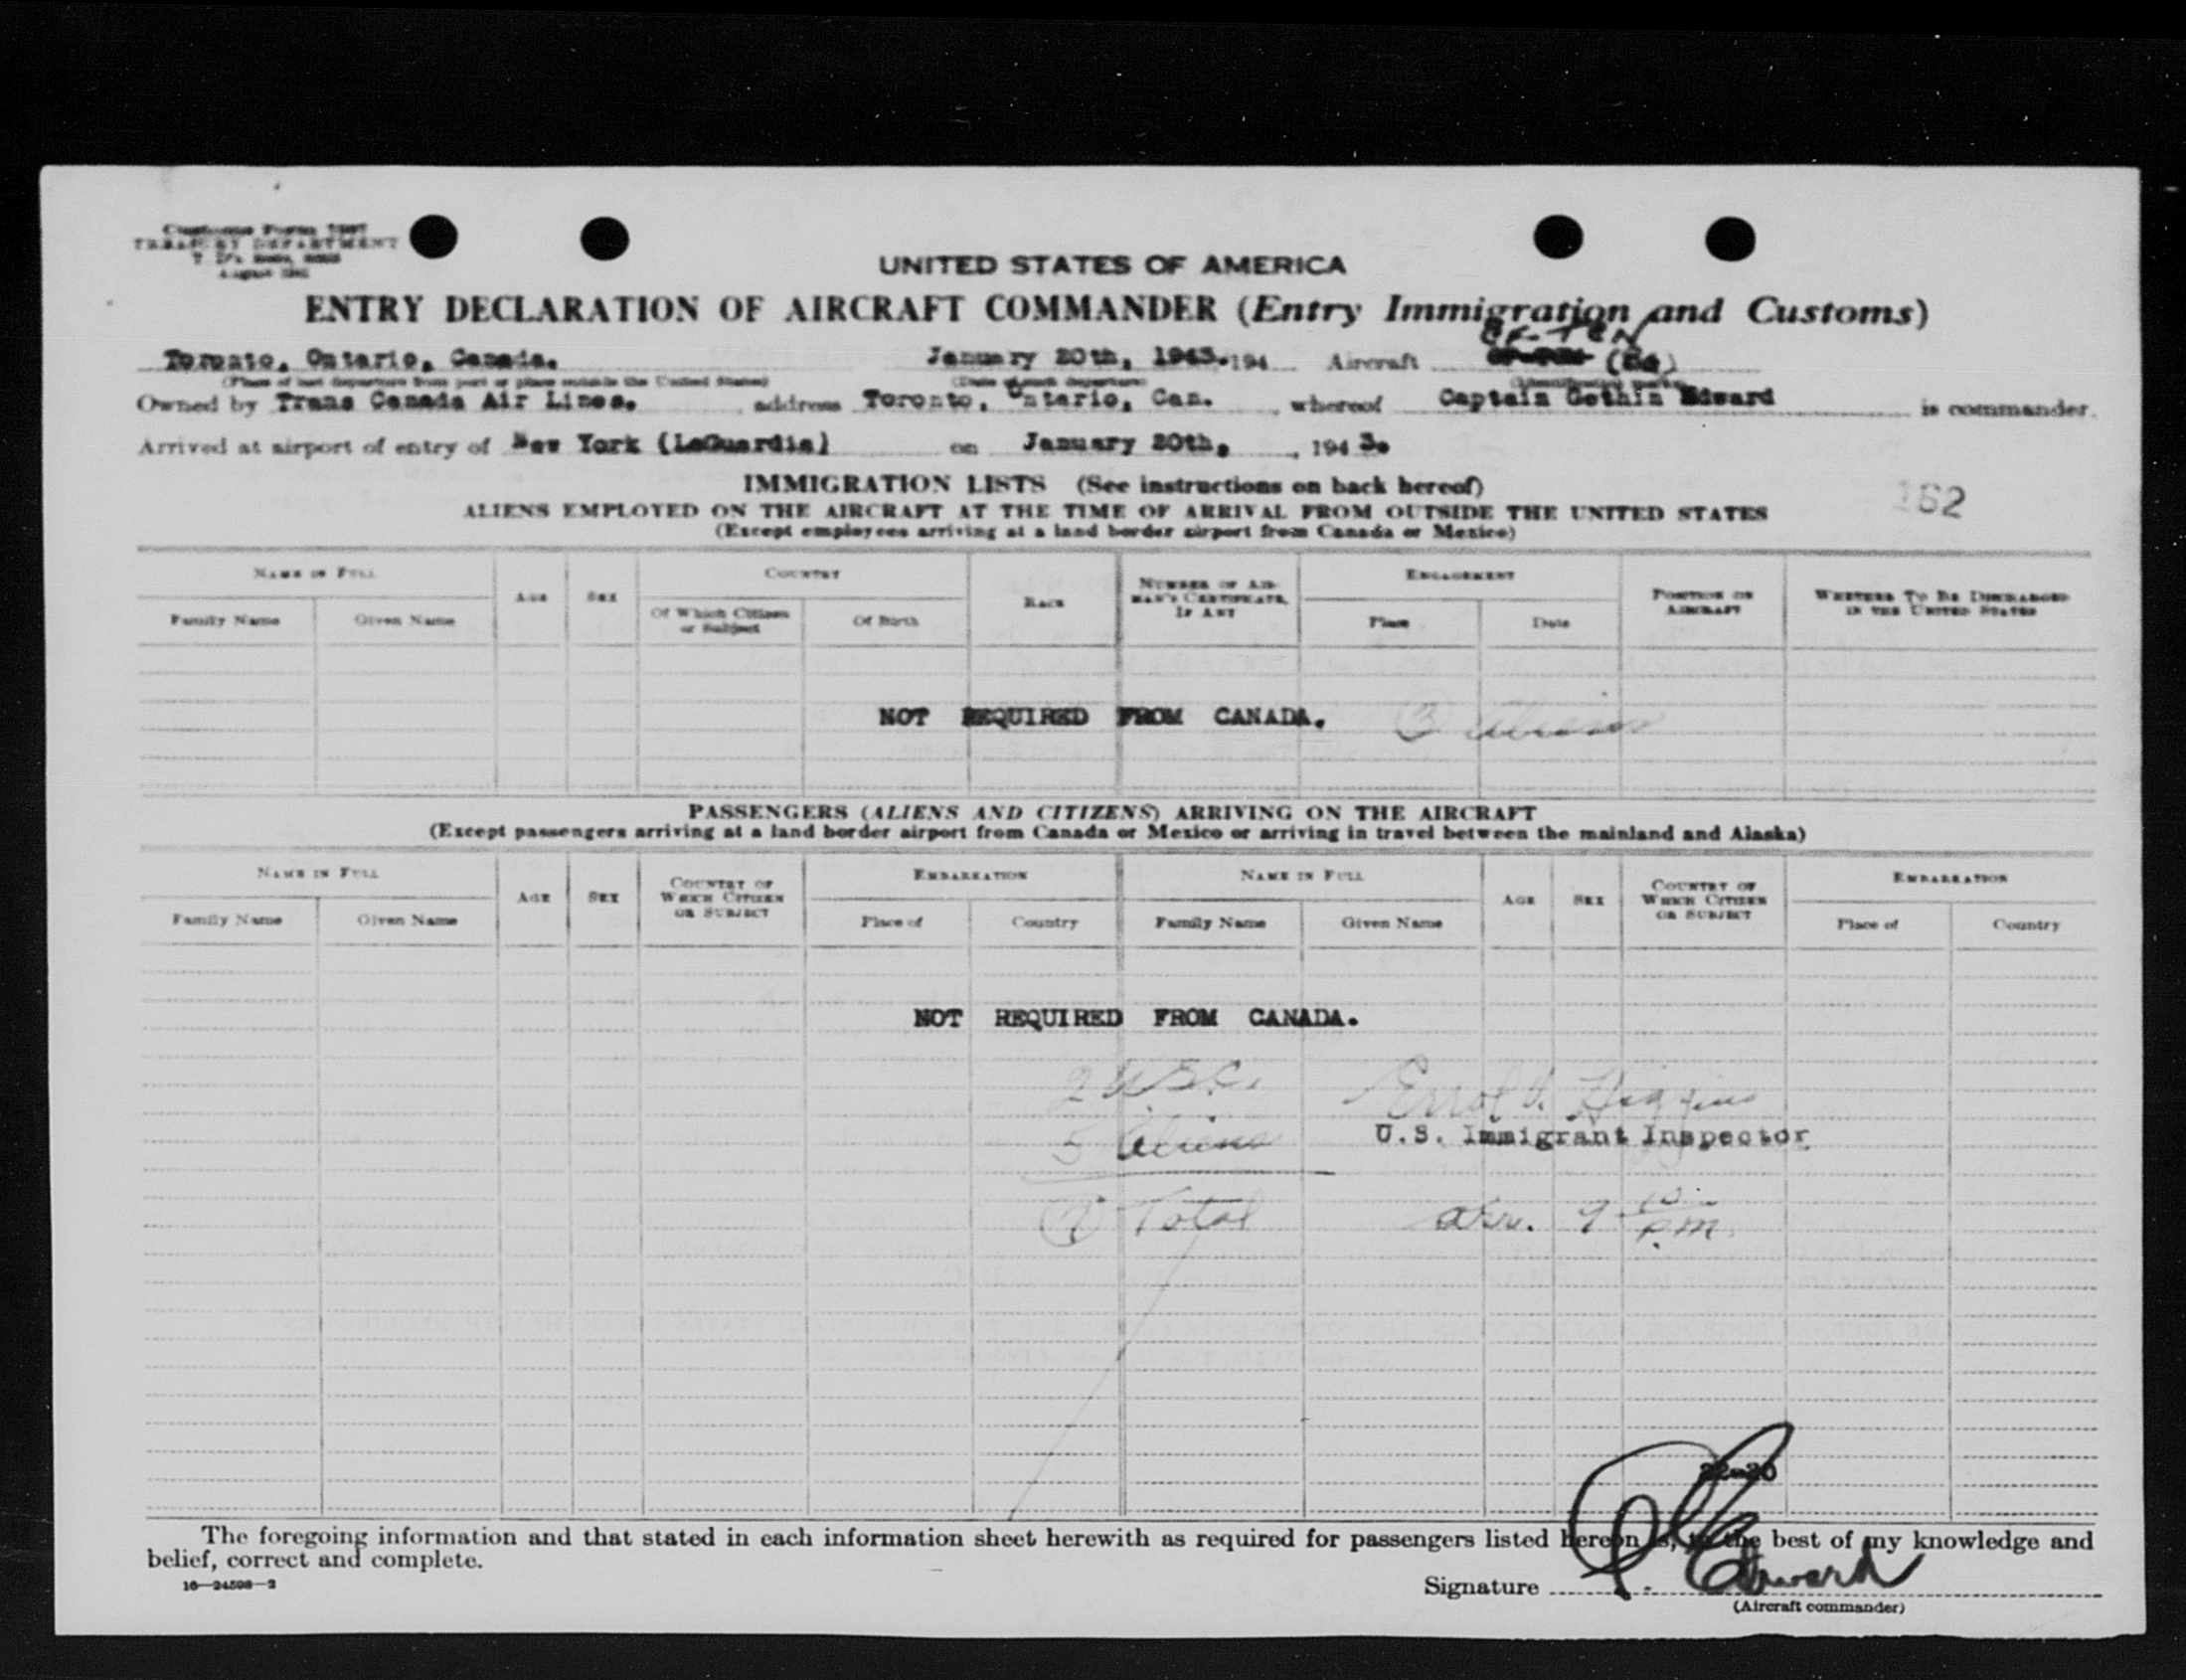 Customs Form
TREASURY DEPARTMENT
August
UNITED STATES OF AMERICA
ENTRY DECLARATION OF AIRCRAFT COMMANDER (Entry Immigration and Customs)
CF-TCN
Toronto, Ontario, Canada. January 20th, 1943. 194 Aircraft
(Place of last departure from port or place outside the United States) (Date of such departure)
Owned by Trans Canada Air Lines. address Toronto, Ontario, Can. , whereof Captain Gethin Edward is commander.
Arrived at airport of entry of New York (LaGuardia) on January 20th, , 1943.
IMMIGRATION LISTS (See instructions on back hereof)
162
ALIENS EMPLOYED ON THE AIRCRAFT AT THE TIME OF ARRIVAL FROM OUTSIDE THE UNITED STATES
(Except employees arriving at a land border airport from Canada or Mexico)
NAME IN FULL AGE SEX COUNTRY RACE NUMBER OF AIRMAN'S CERTIFICATE, IF ANY ENGAGEMENT POSITION ON AIRCRAFT WHETHER TO BE DISCHARGED IN THE UNITED STATES
Family Name Given Name Of Which Citizen or Subject Of Birth Place Date
NOT REQUIRED FROM CANADA. 3 aliens
PASSENGERS (ALIENS AND CITIZENS) ARRIVING ON THE AIRCRAFT
(Except passengers arriving at a land border airport from Canada or Mexico or arriving in travel between the mainland and Alaska)
NAME IN FULL AGE SEX COUNTRY OF WHICH CITIZEN OR SUBJECT EMBARKATION NAME IN FULL AGE SEX COUNTRY OF WHICH CITIZEN OR SUBJECT EMBARKATION
Family Name Given Name Place of Country Family Name Given Name Place of Country
NOT REQUIRED FROM CANADA.
2 U.S.C. Errol Higgins
5 Aliens U.S. Immigrant Inspector
7 Total arr. 9 PM
22-20
The foregoing information and that stated in each information sheet herewith as required for passengers listed hereon is, to the best of my knowledge and
belief, correct and complete.
16—24598—2
Signature Edward
(Aircraft commander)